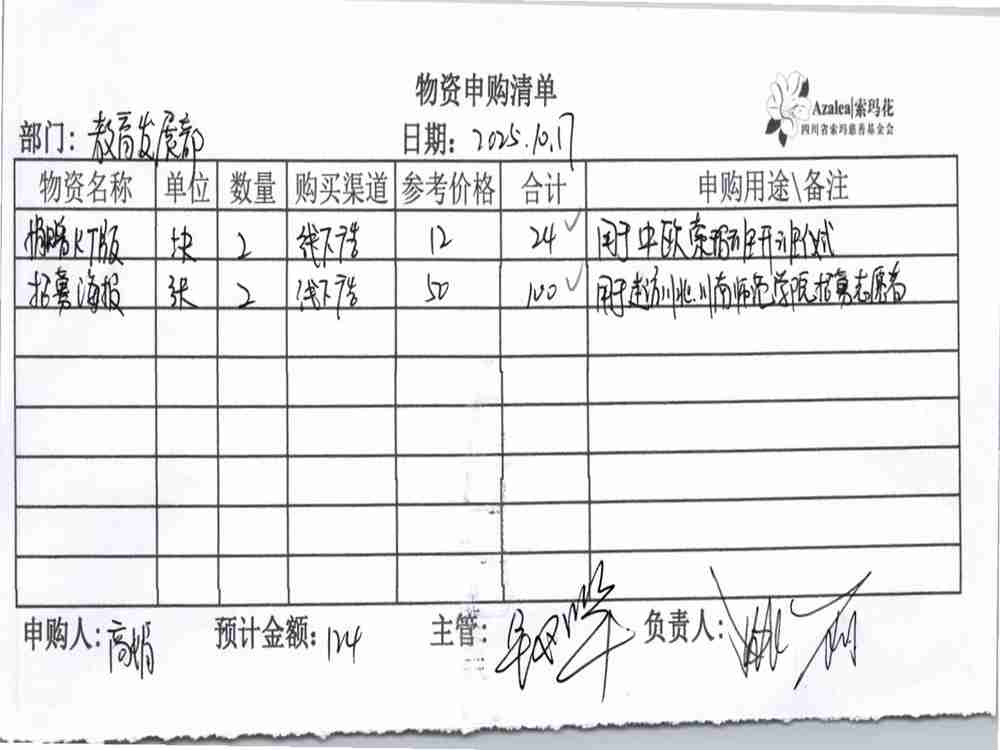 物资申购清单
Azalea|索玛花
四川省索玛慈善基金会
部门：教育发展部 日期：2025.10.17
物资名称 单位 数量 购买渠道 参考价格 合计 申购用途\备注
捐赠KT版 块 2 线下广告 12 24 用于中欧索玛班开班仪式
招募海报 张 2 线下广告 50 100 用于走访川北川南师范学院招募志愿者
申购人：高娟 预计金额：124 主管： 负责人：